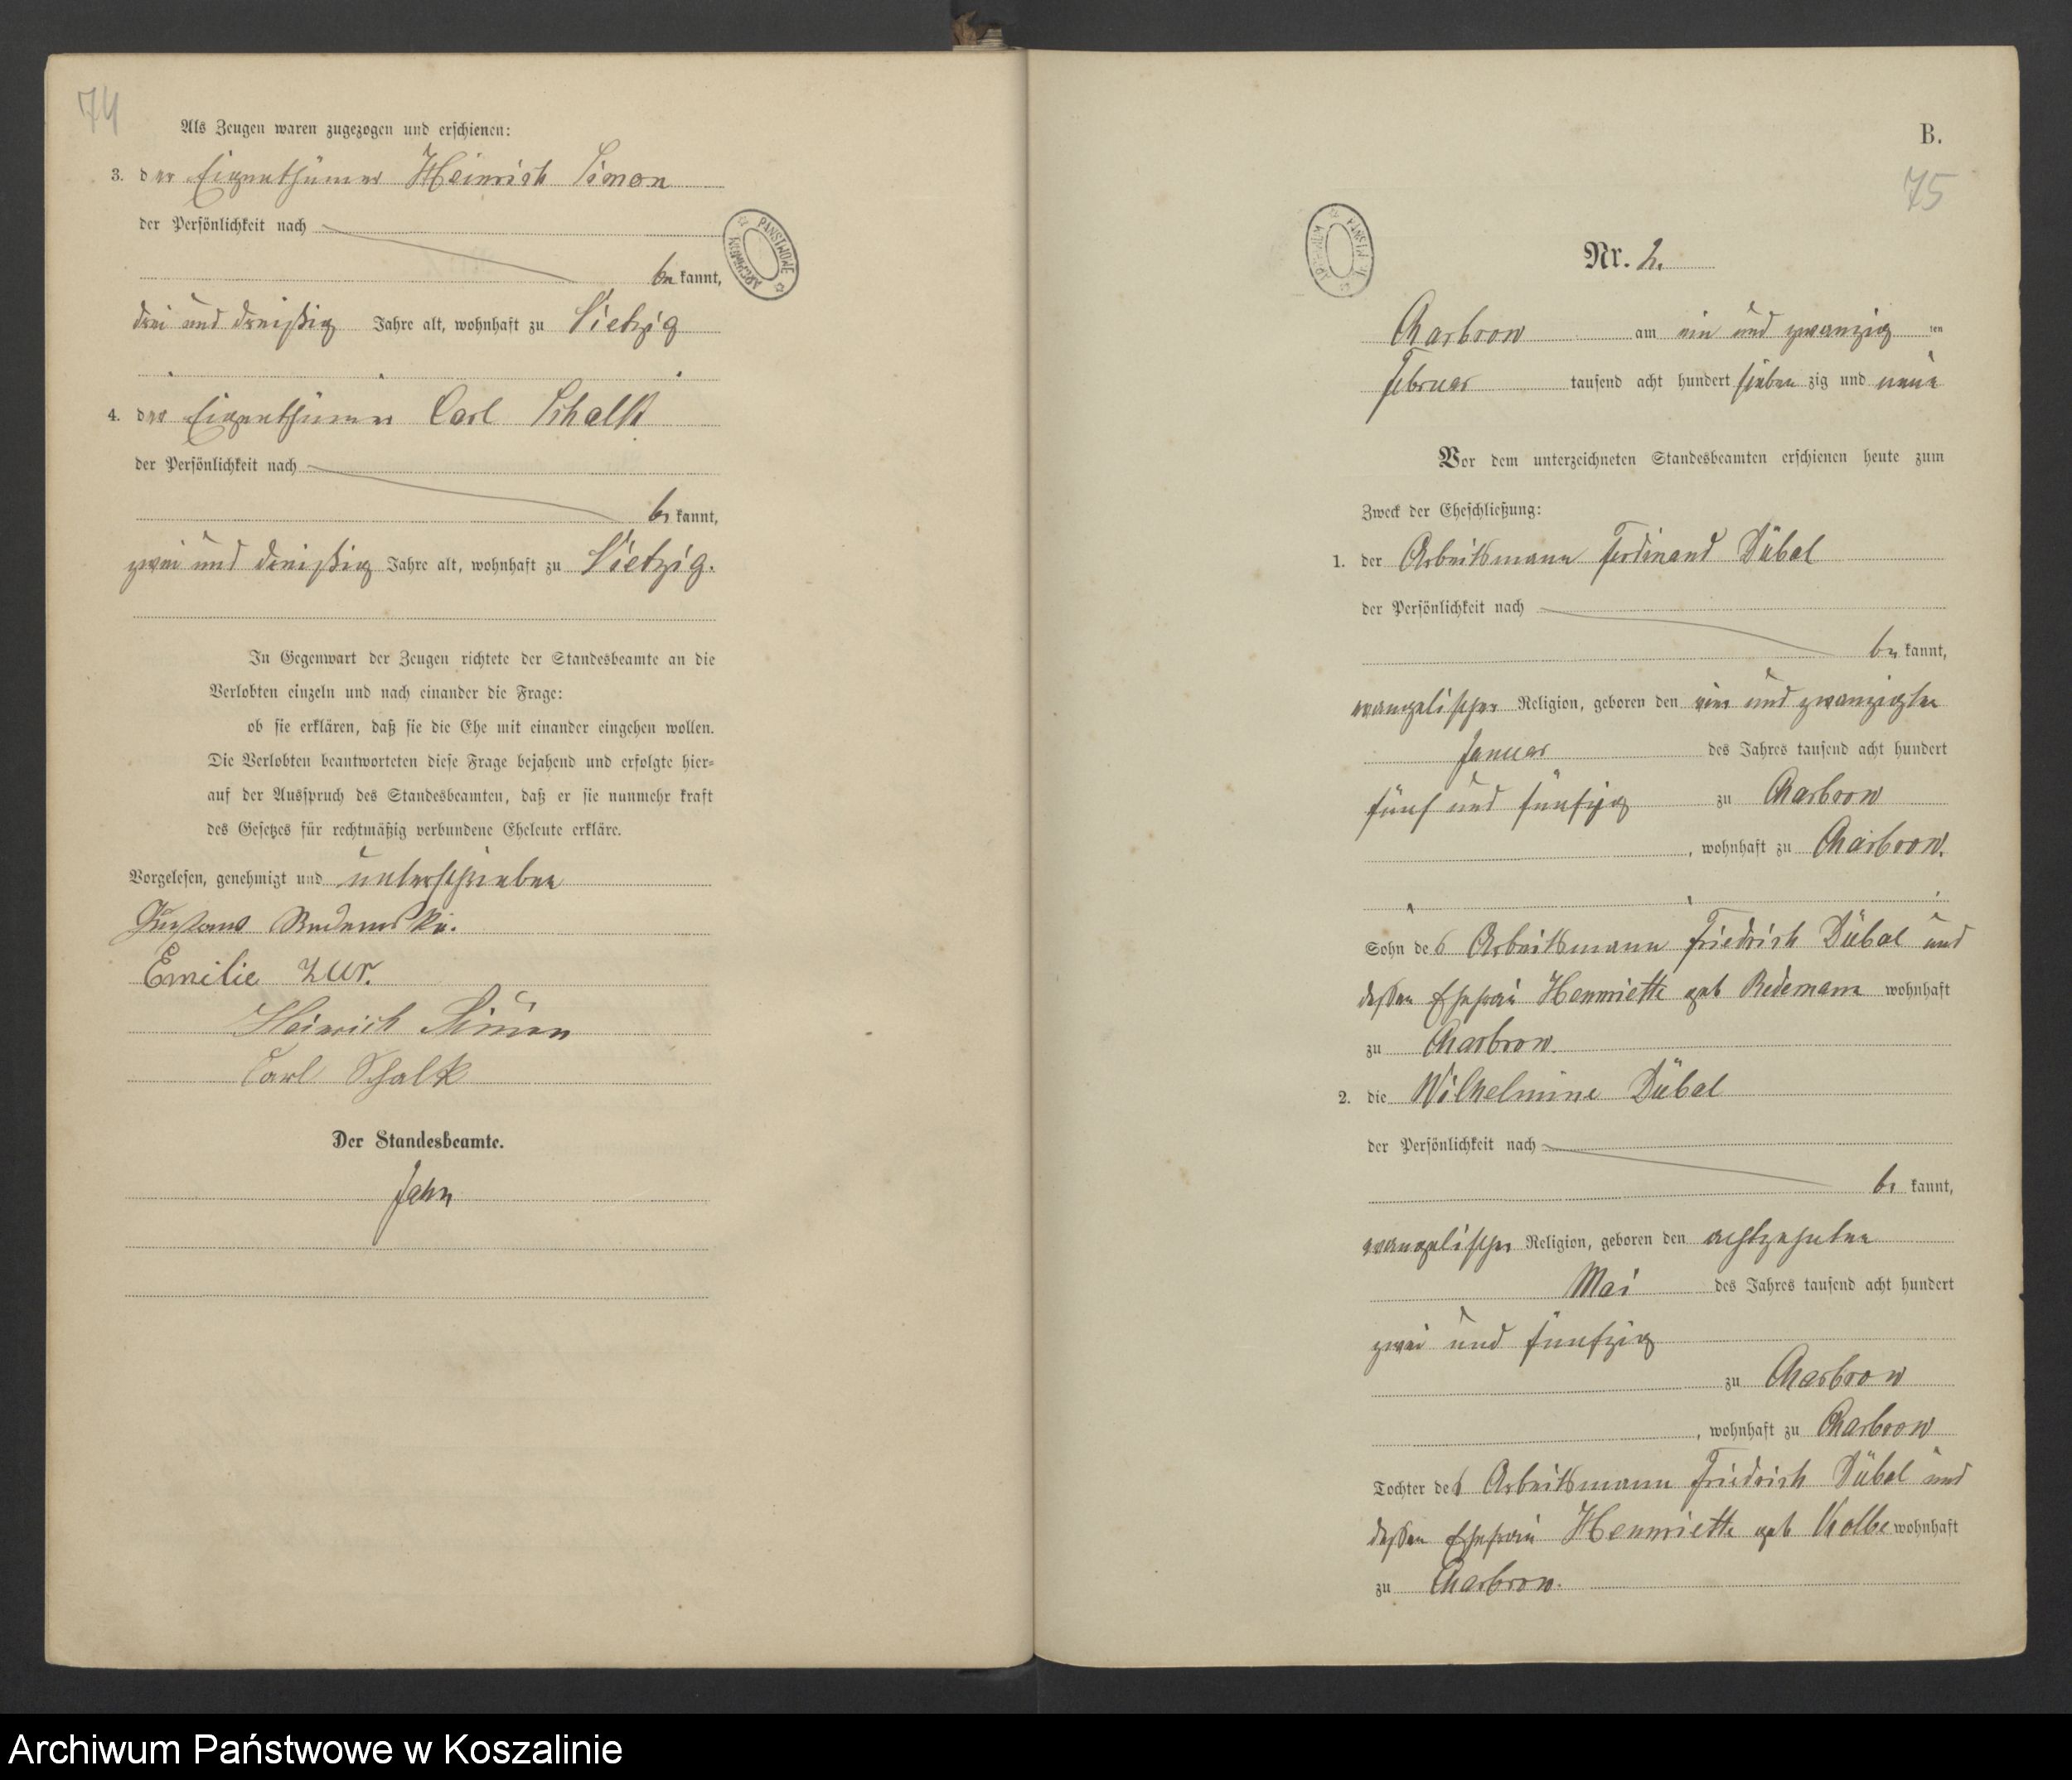 74
Als Zeugen waren zugezogen und erschienen:
3. der Eigenthümer Heinrich Simon
der Persönlichkeit nach
be kannt,
drei und dreißig Jahre alt, wohnhaft zu Vietzig
4. der Eigenthümer Carl Schalk
der Persönlichkeit nach
be kannt,
zwei und dreißig Jahre alt, wohnhaft zu Vietzig.
In Gegenwart der Zeugen richtete der Standesbeamte an die
Verlobten einzeln und nach einander die Frage:
ob sie erklären, daß sie die Ehe mit einander eingehen wollen.
Die Verlobten beantworteten diese Frage bejahend und erfolgte hier=
auf der Ausspruch des Standesbeamten, daß er sie nunmehr kraft
des Gesetzes für rechtmäßig verbundene Eheleute erkläre.
Vorgelesen, genehmigt und unterschrieben
Gustav
Emilie Zur.
Heinrich Simon
Carl Schalk
Der Standesbeamte.
Jahn
ARCHIWUM PAŃSTWOWE
B.
75
Nr. 2.
Charbrow am ein und zwanzig ten
Februar tausend acht hundert sieben zig und neun
Vor dem unterzeichneten Standesbeamten erschienen heute zum
Zweck der Eheschließung:
1. der Arbeitsmann Ferdinand Dübal
der Persönlichkeit nach
be kannt,
evangelischer Religion, geboren den ein und zwanzigsten
Januar des Jahres tausend acht hundert
fünf und fünfzig zu Charbrow
, wohnhaft zu Charbrow.
Sohn des Arbeitsmann Friedrich Dübal und
dessen Ehefrau Hennriette geb Redemann wohnhaft
zu Charbrow.
2. die Wilhelmine Dübal
der Persönlichkeit nach
be kannt,
evangelischer Religion, geboren den achtzehnten
Mai des Jahres tausend acht hundert
zwei und fünfzig
zu Charbrow
, wohnhaft zu Charbrow
Tochter des Arbeitsmann Friedrich Dübal und
dessen Ehefrau Hennriette geb Kolbe wohnhaft
zu Charbrow.
Archiwum Państwowe w Koszalinie